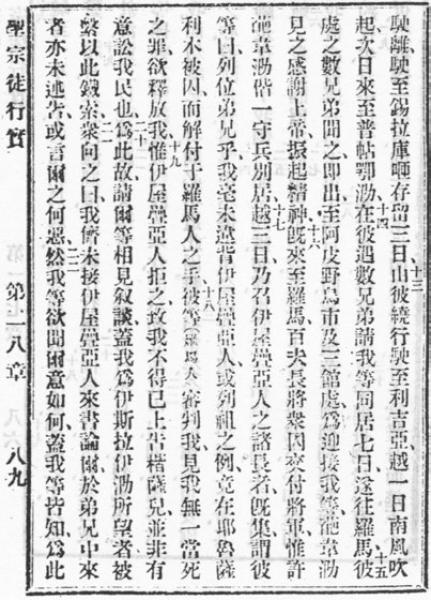 駛離駛至錫拉庫咂存留三日山彼繞行駛至利吉亞、十三越一日南風吹
起次日來至普帖鄂泐、十四在彼遇數兄弟請我等同居七日遂往羅馬、十五彼
處之數兄弟聞之即出至阿皮野烏市及三館處、爲迎接我等、葩韋泐
見之感謝上帝振起精神、十六旣來至羅馬百夫長將衆囚交付將軍惟許
葩韋泐偕一守兵別居、十七越三日乃召伊屋疊亞人之諸長者旣集謂彼
等曰列位弟兄乎我毫未違背伊屋疊亞人或列祖之例竟在耶魯薩
利木被囚而解付于羅馬人之手、十八彼等羅馬人審判我見我無一當死
之罪欲釋放我、十九惟伊屋疊亞人拒之致我不得已上告楷薩兒、並非有
意訟我民也、二十爲此故請爾等相見叙談蓋我爲伊斯拉伊泐所望者被
繫以此鐵索、二一衆向之曰我儕未接伊屋疊亞人來書論爾、於弟兄中來
者亦未述告或言爾之何惡、二二然我等欲聞爾意如何、蓋我等皆知爲此
聖宗徒行實 第二八章 八九